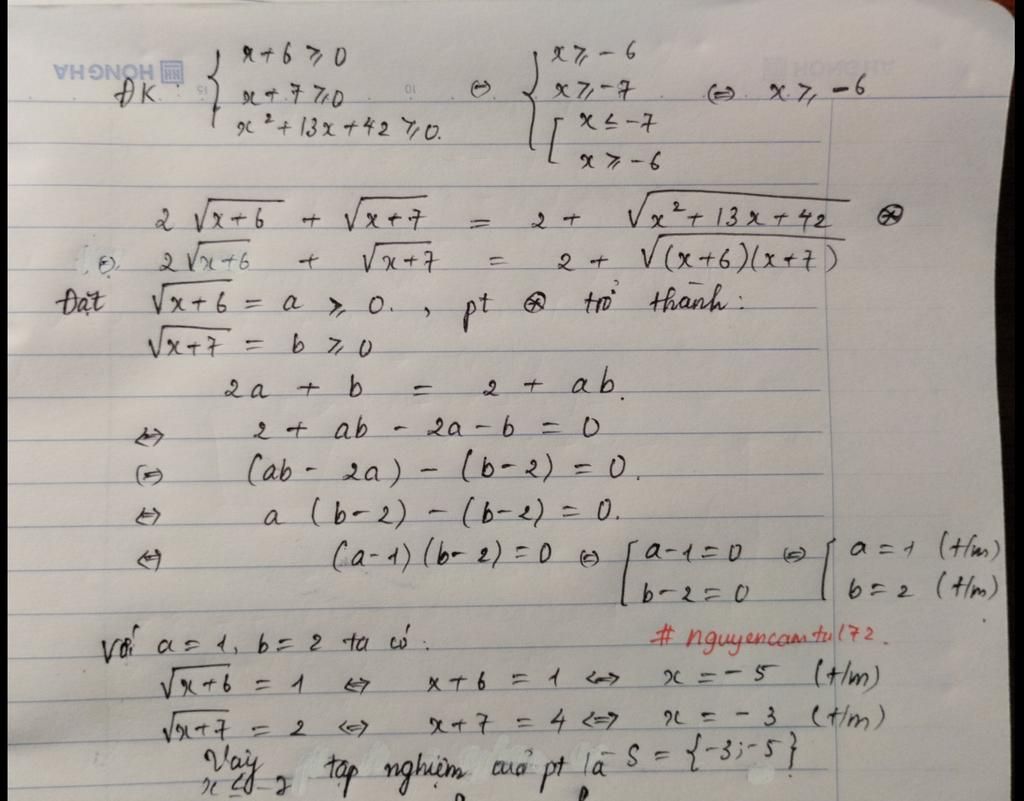 HONG HA
HONG HA
ĐK : { x + 6 ≥ 0
x + 7 ≥ 0
x² + 13x + 42 ≥ 0.
⇔ { x ≥ -6
x ≥ -7
[ x ≤ -7
x ≥ -6
⇔ x ≥ -6
2√(x+6) + √(x+7) = 2 + √(x² + 13x + 42) ⊛
⇔ 2√(x+6) + √(x+7) = 2 + √((x+6)(x+7))
Đặt √(x+6) = a ≥ 0. , pt ⊛ trở thành :
√(x+7) = b ≥ 0
2a + b = 2 + ab.
⇔ 2 + ab - 2a - b = 0
⇔ (ab - 2a) - (b - 2) = 0.
⇔ a (b - 2) - (b - 2) = 0.
⇔ (a-1)(b-2) = 0 ⇔ [ a - 1 = 0 ⇔ [ a = 1 (t/m)
b - 2 = 0 b = 2 (t/m)
Với a = 1, b = 2 ta có :
# nguyencamtu172.
√(x+6) = 1 ⇔ x + 6 = 1 ⇔ x = -5 (t/m)
√(x+7) = 2 ⇔ x + 7 = 4 ⇔ x = -3 (t/m)
Vậy tập nghiệm của pt là S = {-3; -5}